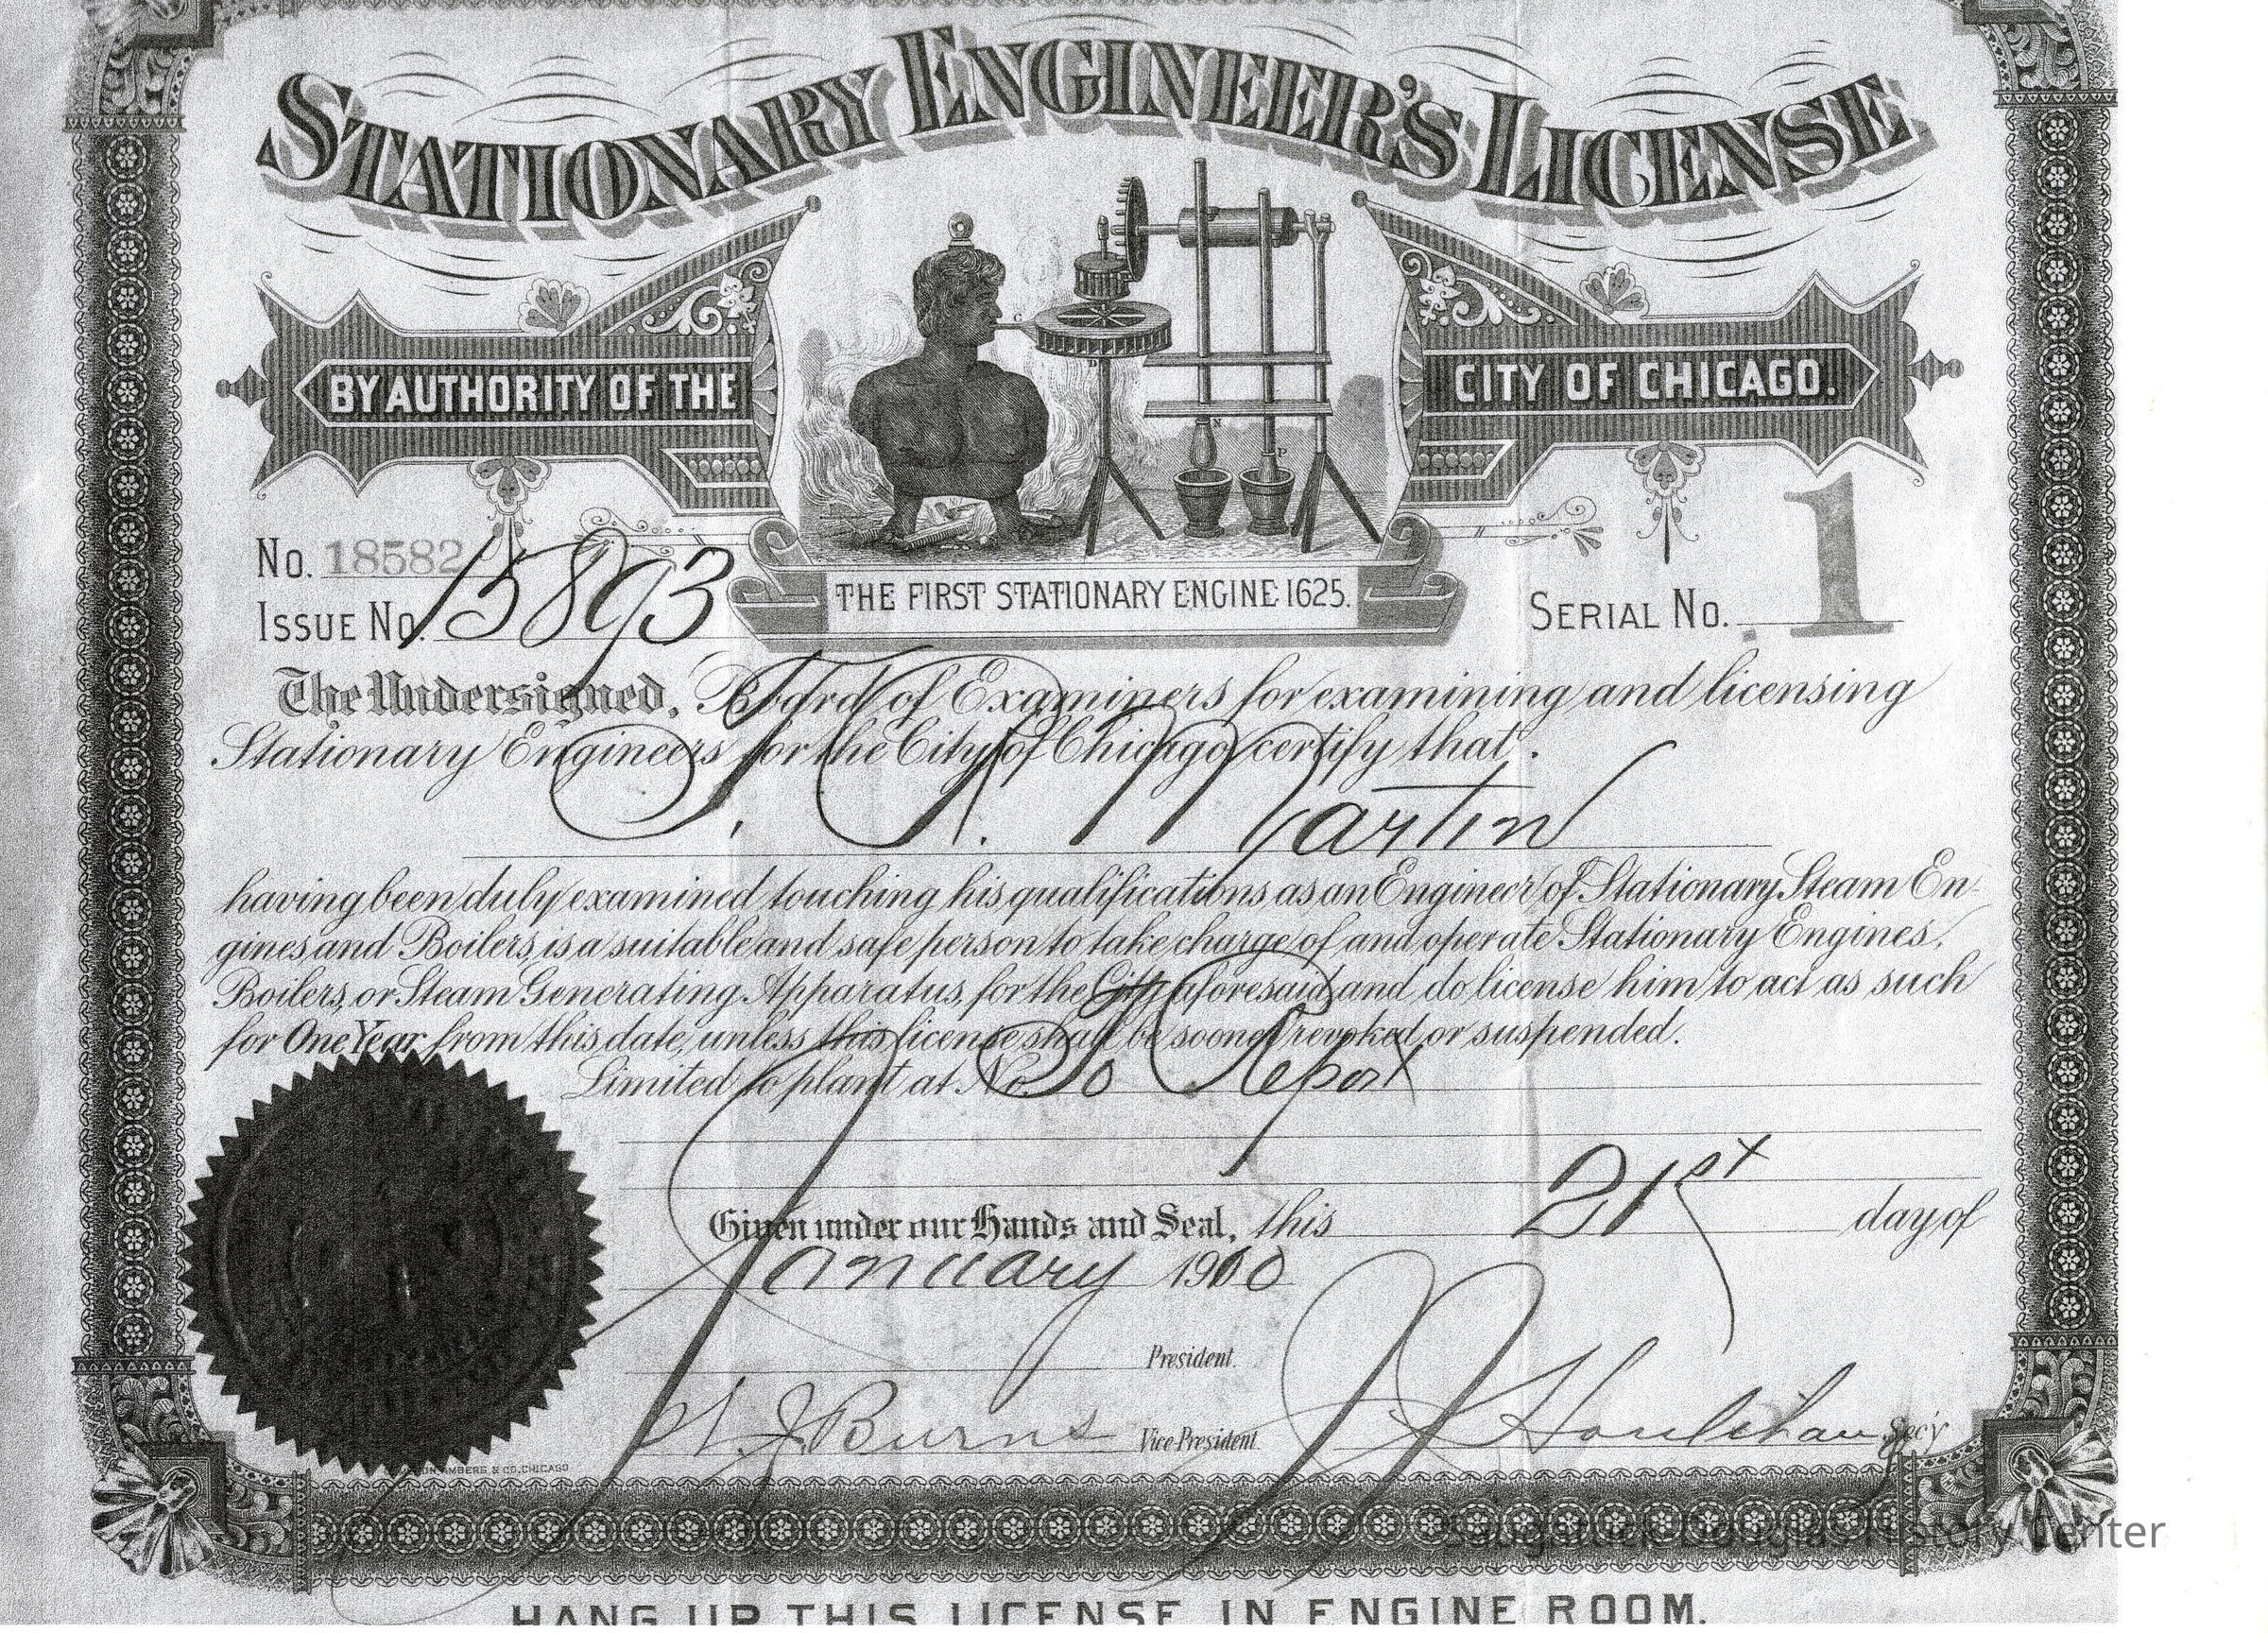 STATIONARY ENGINEER'S LICENSE
BY AUTHORITY OF THE CITY OF CHICAGO.
C
D
N
P
No. 18582
Issue No. 15893
THE FIRST STATIONARY ENGINE 1625.
SERIAL No. 1
The Undersigned, Board of Examiners for examining and licensing
Stationary Engineers for the City of Chicago certify that
T. R. Martin
having been duly examined touching his qualifications as an Engineer of Stationary Steam En-
gines and Boilers, is a suitable and safe person to take charge of and operate Stationary Engines,
Boilers, or Steam Generating Apparatus, for the City aforesaid and do license him to act as such
for One Year from this date, unless this license shall be sooner revoked or suspended.
Limited to plant at No. To Report
Given under our Hands and Seal, this 21st day of
January 1900
President.
Burns Vice President. Houlihan Sec'y
& CO. CHICAGO
HANG UP THIS LICENSE IN ENGINE ROOM.
Saugatuck-Douglas History Center